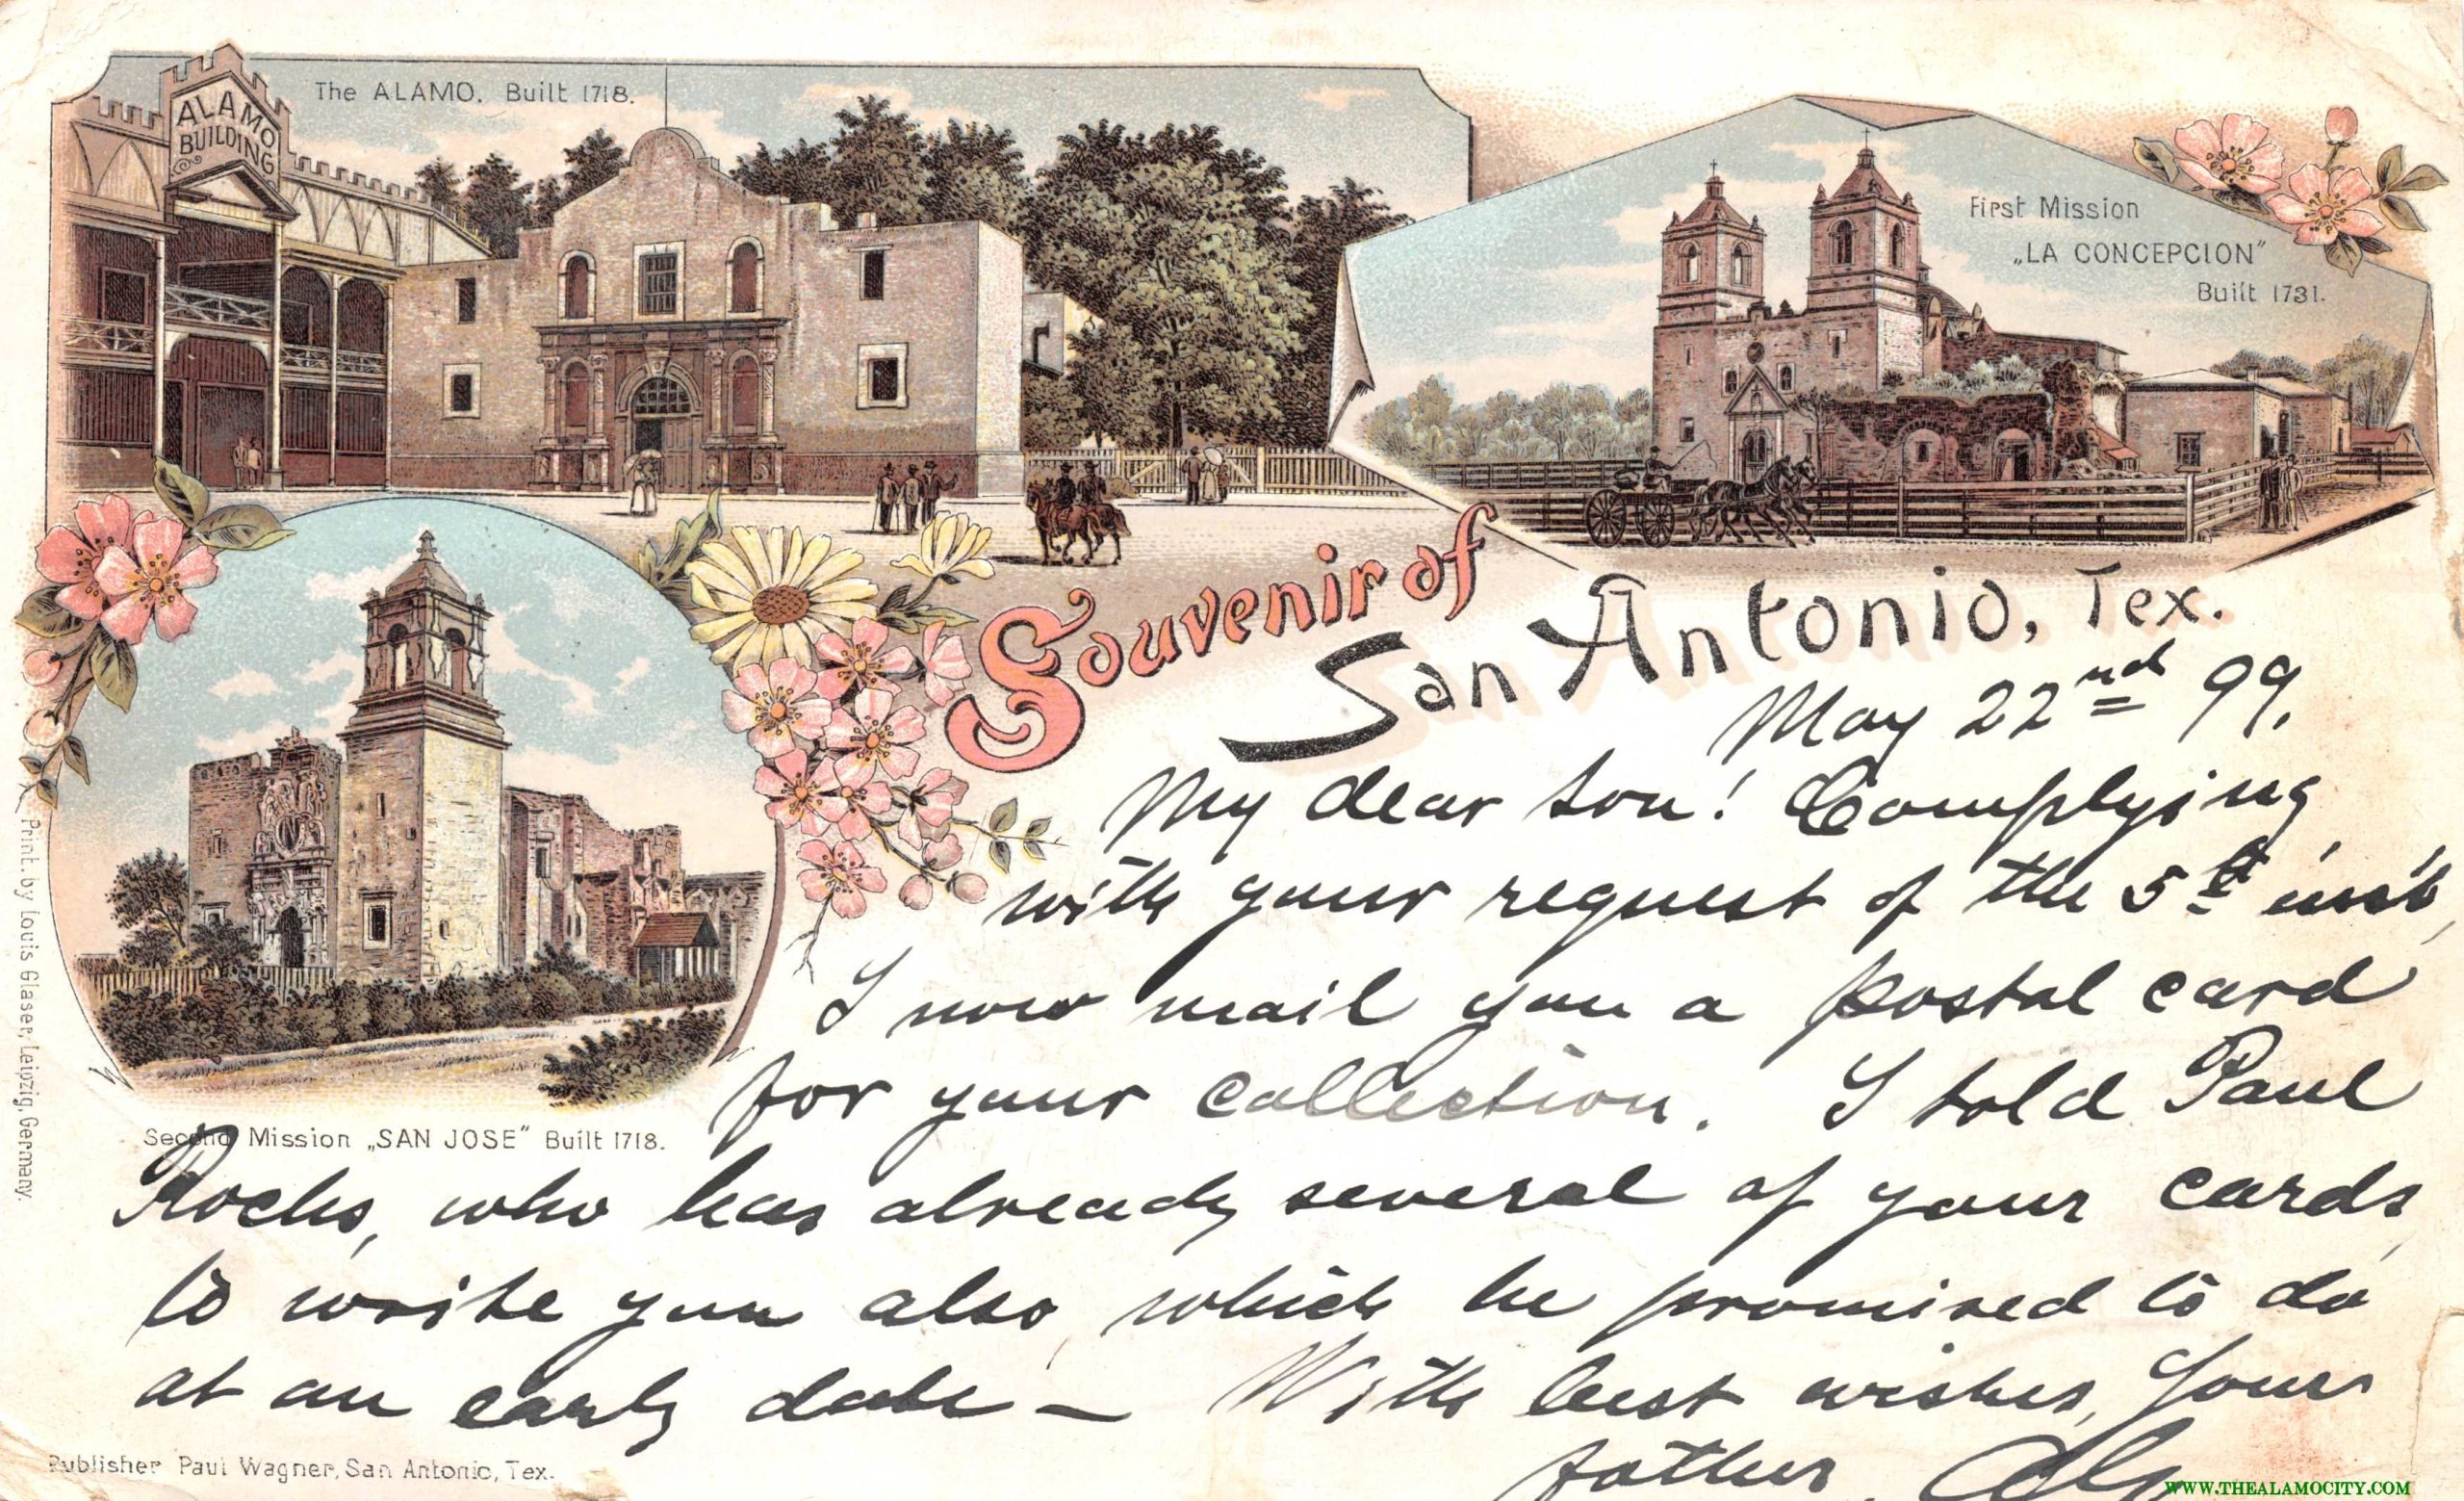 The ALAMO. Built 1718.
ALAMO
BUILDING
First Mission
„LA CONCEPCION”
Built 1731.
Souvenir of
San Antonio, Tex.
May 22nd 99.
My dear son! Complying
with your request of the 5th inst,
I now mail you a postal card
for your collection. I told Paul
Rochs, who has already several of your cards,
to write you also, which he promised to do
at an early date — With best wishes, Your
father,
Second Mission „SAN JOSE” Built 1718.
Print. by Louis Glaser, Leipzig, Germany.
Publisher Paul Wagner, San Antonio, Tex.
WWW.THEALAMOCITY.COM